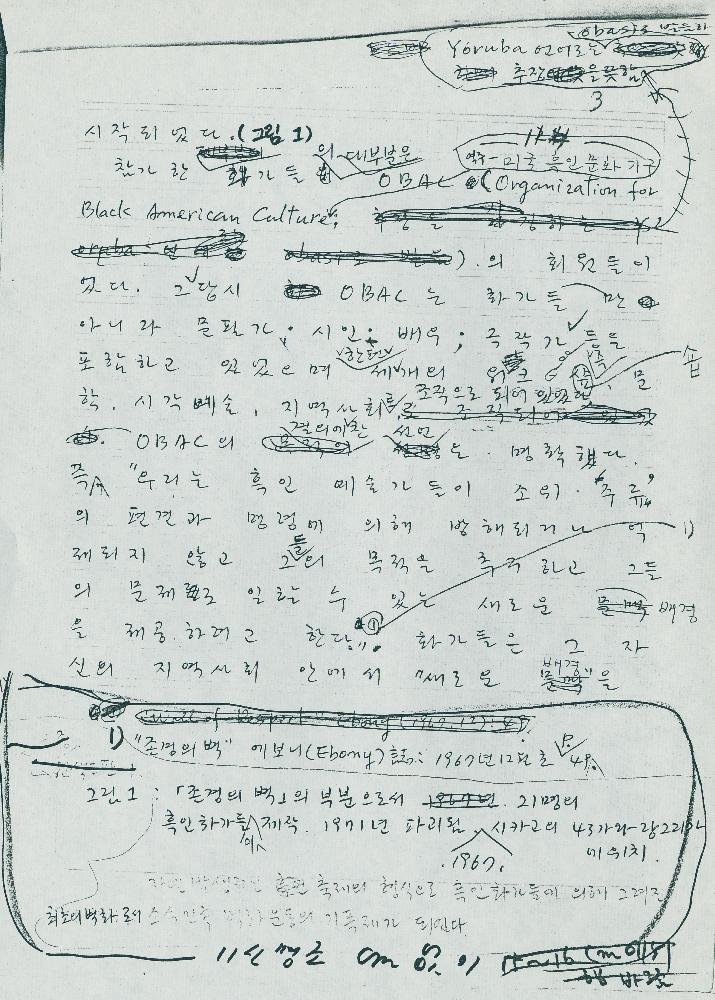 obasi로 발음하
Yoruba 언어로는
추장을 뜻함
3
시작되었다. (그림 1)
참가한 화가들의 대부분은
역주-미국 흑인 문화 기구
OBAC (Organization for
Black American Culture;
obasi로 발음). 의 회원들이
었다. 그 당시 OBAC는 화가들만
아니라 문필가; 시인; 배우; 극작가 등을
포함하고 있었으며 한편 세 개의 워크숍 즉, 문
숍
학, 시각예술, 지역사회로 조직으로 되어 있었다
OBAC의 결의에 찬 선언은 명확했다.
즉, "우리는 흑인 예술가들이 소위 "주류"
의 편견과 명령에 의해 방해되거나 억
1)
제되지 않고 그들의 목적을 추구하고 그들
의 문제로 일할 수 있는 새로운 배경
을 제공하려고 한다." ① 화가들은 그 자
신의 지역사회 안에서 "새로운 배경"을
1) "존경의 벽" 에보니(Ebony)誌: 1967년 12월호 P. 49.
그림 1: 「존경의 벽」의 부분으로서 21명의
흑인화가들이 제작. 1971년 파괴됨. 시카고의 43가와 랑그리가
에 위치.
1967.
축제의 형식으로 흑인화가들에 의해 그려진
최초의 벽화로서 소수민족 벽화운동의 기폭제가 되었다.